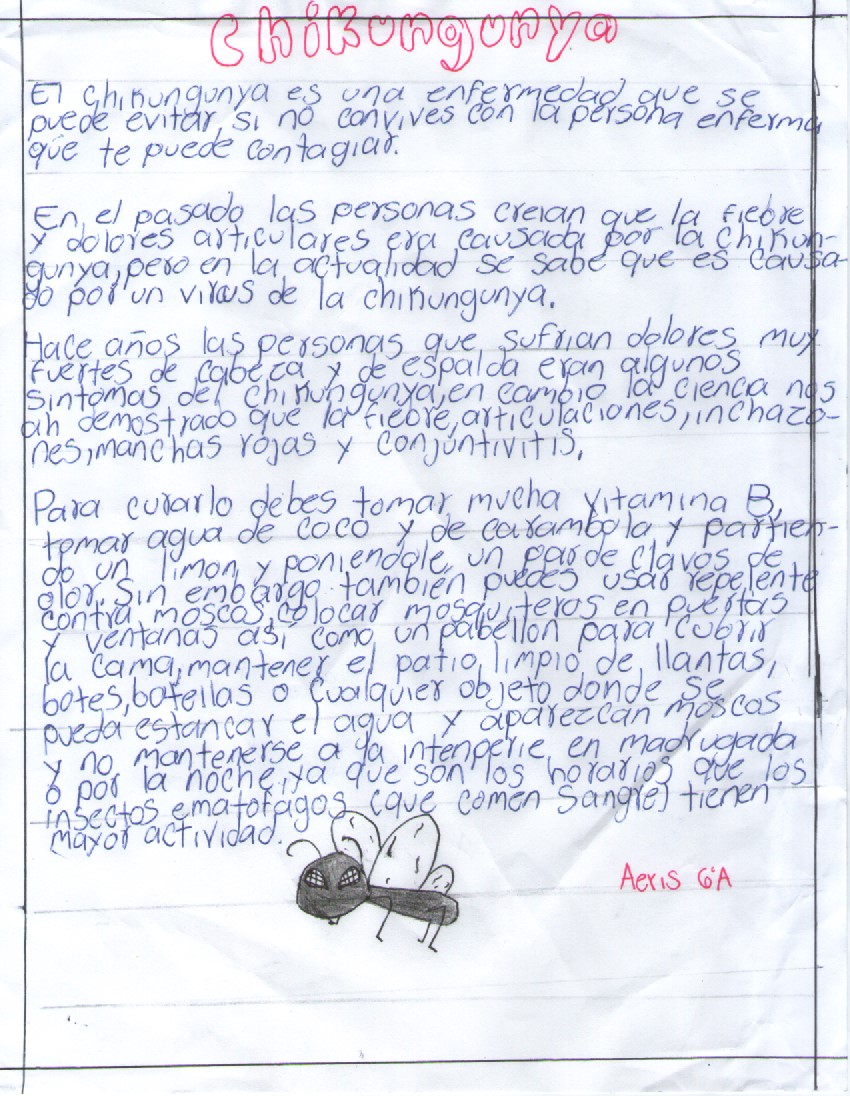 Chikungunya
El chikungunya es una enfermedad que se
puede evitar, si no convives con la persona enferma
que te puede contagiar.
En el pasado las personas creian que la fiebre
y dolores articulares era causada por la chikun-
gunya, pero en la actualidad se sabe que es causa-
do por un virus de la chikungunya.
Hace años las personas que sufrian dolores muy
fuertes de cabeza y de espalda eran algunos
sintomas del chikungunya, en cambio la ciencia nos
ah demostrado que la fiebre, articulaciones, inchazo-
nes, manchas rojas y conjuntivitis.
Para curarlo debes tomar mucha vitamina B,
tomar agua de coco y de carambola y partien-
do un limon y poniendole un par de clavos de
olor. Sin embargo también puedes usar repelente
contra moscos, colocar mosquiteros en puertas
y ventanas asi como un pabellon para cubrir
la cama, mantener el patio limpio de llantas,
botes, botellas o cualquier objeto donde se
pueda estancar el agua y aparezcan moscos
y no mantenerse a la intenperie en madrugada
o por la noche, ya que son los horarios que los
insectos ematofagos (que comen sangre) tienen
mayor actividad.
Aeris 6°A